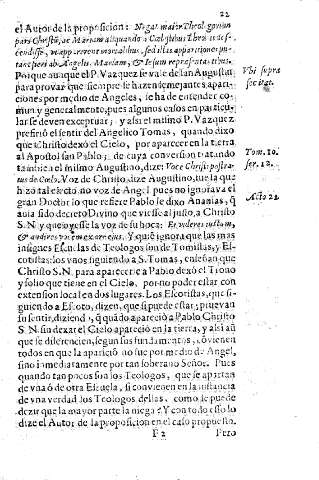 22
el Autor de la proposicion: Negat maior Theologorum
pars Christũ, ac Mariam aliquando è Cœlestibus
per Angelos Mariam, & Iesum representantibus.
Por que aunque el P. Vazquez se vale de San Augustin
para provar que siempre se hazen semejantes apari-
ciones por medio de Angeles, se ha de entender co-
mun y generalmente, pues algunos casos en particu-
lar se deven exceptuar; y assi el mismo P. Vazquez
prefirió el sentir del Angelico Tomas, quando dixo
que Christo dexó el Cielo, por aparecer en la tierra
al Apostol san Pablo; de cuya conversion tratando
tambien el mismo Augustino, dize: Vox Christi
de Cœlo. Voz de Christo, dize Augustino, fue la que
hizo tal efecto, no voz de Angel, pues no ignorava el
gran Doctor lo que refiere Pablo le dixo Ananias, q̃
avia sido decreto Divino que viesse al justo, a Christo
S. N. y que oyesse la voz de su boca: Et videres iustum,
& audires vocem ex ore eius. Y quẽ ignora que las mas
insignes Escuelas de Teologos son de Tomistas, y Es-
cotistas: los vnos siguiendo a S. Tomas, enseñan que
Christo S. N. para aparecerse a Pablo dexó el Trono
y solio que tiene en el Cielo, por no poder estar con
extension local en dos lugares. Los Escotistas, que si-
guiendo a Escoto, dizen, que si puede estar; pruevan
su sentir, diziend, q̃ quãdo apareció a Pablo Christo
S. N. sin dexar el Cielo apareció en la tierra, y assi aũ
que se diferencien, segun sus fundamentos, convienen
todos en que la aparició no fue por medio de Angel,
sino inmediatamente por tan soberano Señor. Pues
quando tan pocos son los Teologos, que se apartan
de vna ó de otra Escuela, si convienen en la sustancia
de vna verdad los Teologos dellas, como se puede
dezir que la mayor parte la niega? Y con todo esso lo
dize el Autor de la proposicion en el caso propuesto.
F 2 Pero
Vbi supra
Tom. 10.
ser. 12.
Acto 22